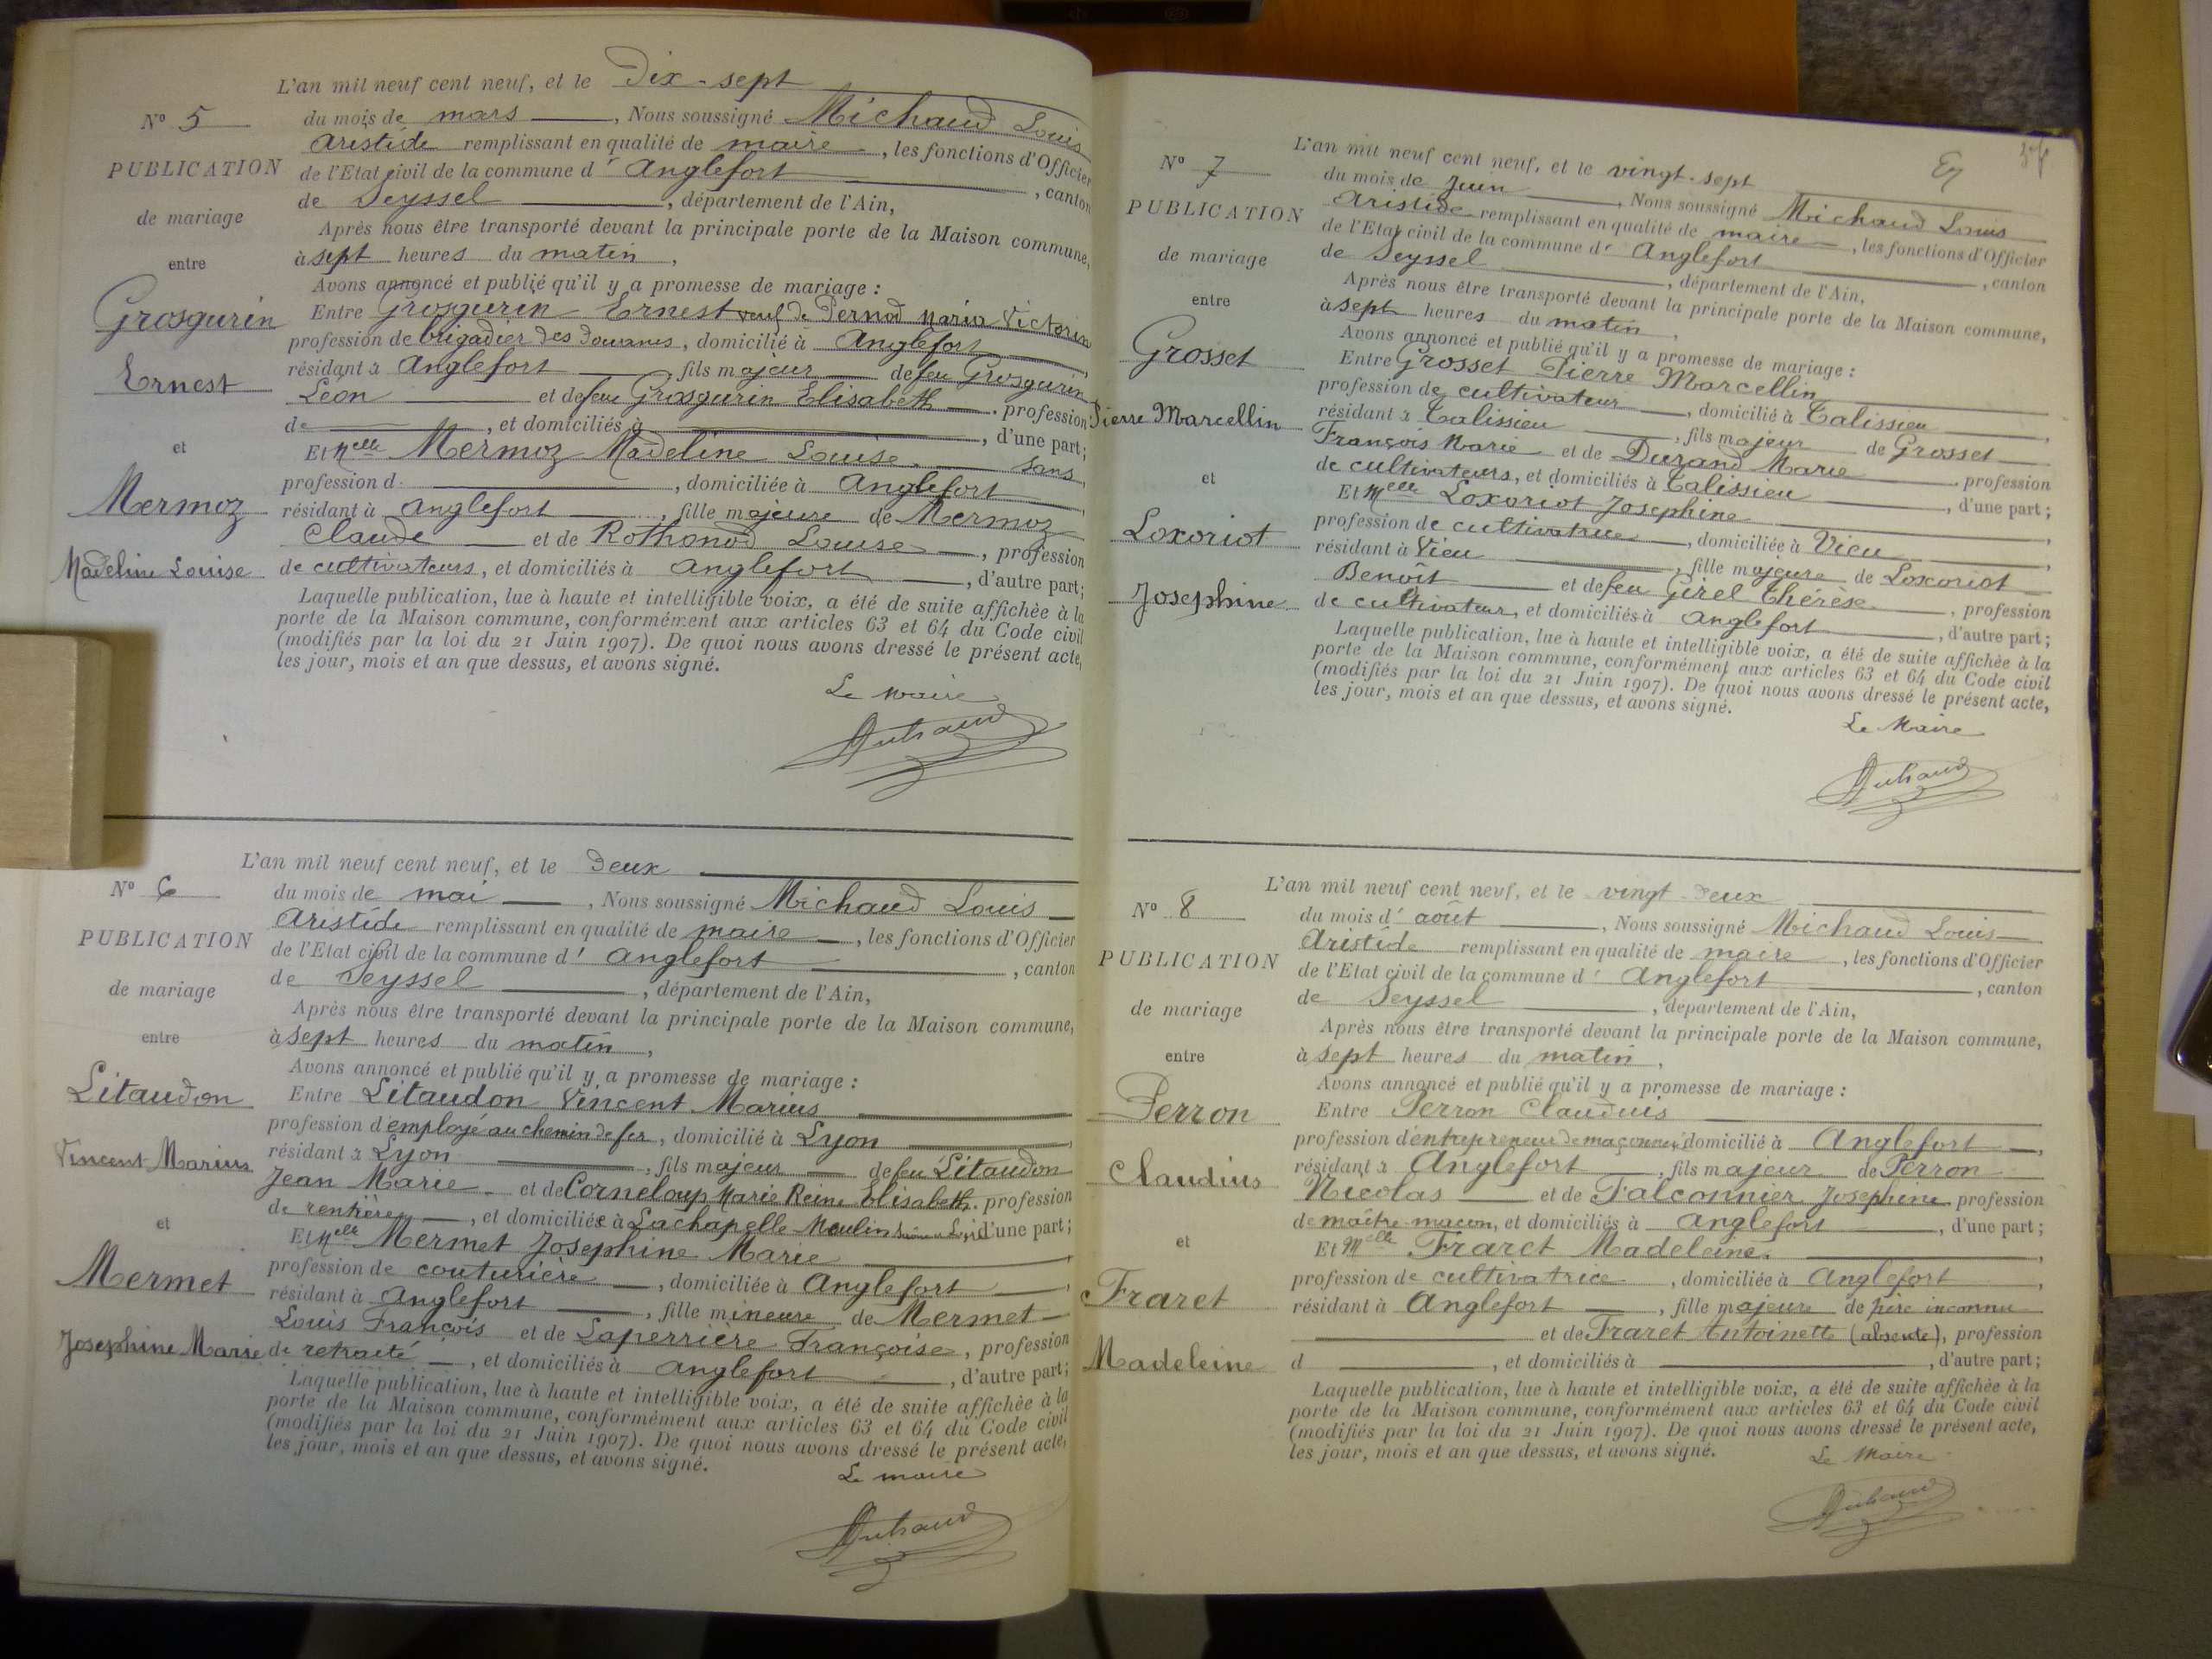 L'an mil neuf cent neuf, et le Dix-sept
N° 5
du mois de mars, Nous soussigné Michaud Louis
Aristide remplissant en qualité de maire, les fonctions d'Officier
PUBLICATION
de l'Etat civil de la commune d' Anglefort, canton
de Seyssel, département de l'Ain,
de mariage
Après nous être transporté devant la principale porte de la Maison commune,
entre
à sept heures du matin,
Avons annoncé et publié qu'il y a promesse de mariage :
Grosgurin
Entre Grosgurin Ernest veuf de Pernod Maria Victorin
profession de brigadier des Douanes, domicilié à Anglefort,
Ernest
résidant à Anglefort, fils majeur de feu Grosgurin
Léon et de feu Grosgurin Elisabeth, profession
de, et domiciliés à, d'une part;
et
Et Melle Mermoz Madeline Louise, sans
profession d, domiciliée à Anglefort,
Mermoz
résidant à Anglefort, fille majeure de Mermoz
Claude et de Rothonod Louise, profession
Madeline Louise
de cultivateurs, et domiciliés à Anglefort, d'autre part;
Laquelle publication, lue à haute et intelligible voix, a été de suite affichée à la
porte de la Maison commune, conformément aux articles 63 et 64 du Code civil
(modifiés par la loi du 21 Juin 1907). De quoi nous avons dressé le présent acte,
les jour, mois et an que dessus, et avons signé.
Le maire
L'an mil neuf cent neuf, et le Deux
N° 6
du mois de mai, Nous soussigné Michaud Louis
Aristide remplissant en qualité de maire, les fonctions d'Officier
PUBLICATION
de l'Etat civil de la commune d' Anglefort, canton
de Seyssel, département de l'Ain,
de mariage
Après nous être transporté devant la principale porte de la Maison commune,
entre
à sept heures du matin,
Avons annoncé et publié qu'il y a promesse de mariage :
Litaudon
Entre Litaudon Vincent Marius
profession d'employé au chemin de fer, domicilié à Lyon,
Vincent Marius
résidant à Lyon, fils majeur de feu Litaudon
Jean Marie et de Corneloup Marie Reine Elisabeth, profession
de rentière, et domiciliée à Lachapelle Moulin, d'une part;
et
Et Melle Mermet Josephine Marie,
profession de couturière, domiciliée à Anglefort,
Mermet
résidant à Anglefort, fille mineure de Mermet
Louis François et de Laperrière Françoise, profession
Josephine Marie
de retraité, et domiciliés à Anglefort, d'autre part;
Laquelle publication, lue à haute et intelligible voix, a été de suite affichée à la
porte de la Maison commune, conformément aux articles 63 et 64 du Code civil
(modifiés par la loi du 21 Juin 1907). De quoi nous avons dressé le présent acte,
les jour, mois et an que dessus, et avons signé.
Le maire
L'an mil neuf cent neuf, et le vingt-sept
N° 7
du mois de juin, Nous soussigné Michaud Louis
Aristide remplissant en qualité de maire, les fonctions d'Officier
PUBLICATION
de l'Etat civil de la commune d' Anglefort, canton
de Seyssel, département de l'Ain,
de mariage
Après nous être transporté devant la principale porte de la Maison commune,
entre
à sept heures du matin,
Avons annoncé et publié qu'il y a promesse de mariage :
Grosset
Entre Grosset Pierre Marcellin
profession de cultivateur, domicilié à Talissieu,
Pierre Marcellin
résidant à Talissieu, fils majeur de Grosset
François Marie et de Durand Marie, profession
de cultivateurs, et domiciliés à Talissieu, d'une part;
et
Et Melle Loxoriot Josephine,
profession de cultivatrice, domiciliée à Vieu,
Loxoriot
résidant à Vieu, fille majeure de Loxoriot
Benoît et de feu Girel Thérèse, profession
Josephine
de cultivateur, et domiciliés à Anglefort, d'autre part;
Laquelle publication, lue à haute et intelligible voix, a été de suite affichée à la
porte de la Maison commune, conformément aux articles 63 et 64 du Code civil
(modifiés par la loi du 21 Juin 1907). De quoi nous avons dressé le présent acte,
les jour, mois et an que dessus, et avons signé.
Le Maire
L'an mil neuf cent neuf, et le vingt-deux
N° 8
du mois d' août, Nous soussigné Michaud Louis
Aristide remplissant en qualité de maire, les fonctions d'Officier
PUBLICATION
de l'Etat civil de la commune d' Anglefort, canton
de Seyssel, département de l'Ain,
de mariage
Après nous être transporté devant la principale porte de la Maison commune,
entre
à sept heures du matin,
Avons annoncé et publié qu'il y a promesse de mariage :
Perron
Entre Perron Claudius
profession d'entrepreneur de maçonnerie, domicilié à Anglefort,
Claudius
résidant à Anglefort, fils majeur de Perron
Nicolas et de Falconnier Josephine, profession
de maître-maçon, et domiciliés à Anglefort, d'une part;
et
Et Melle Fraret Madeleine,
profession de cultivatrice, domiciliée à Anglefort,
Fraret
résidant à Anglefort, fille majeure de père inconnu
et de Fraret Antoinette (absente), profession
Madeleine
d, et domiciliés à, d'autre part;
Laquelle publication, lue à haute et intelligible voix, a été de suite affichée à la
porte de la Maison commune, conformément aux articles 63 et 64 du Code civil
(modifiés par la loi du 21 Juin 1907). De quoi nous avons dressé le présent acte,
les jour, mois et an que dessus, et avons signé.
Le Maire